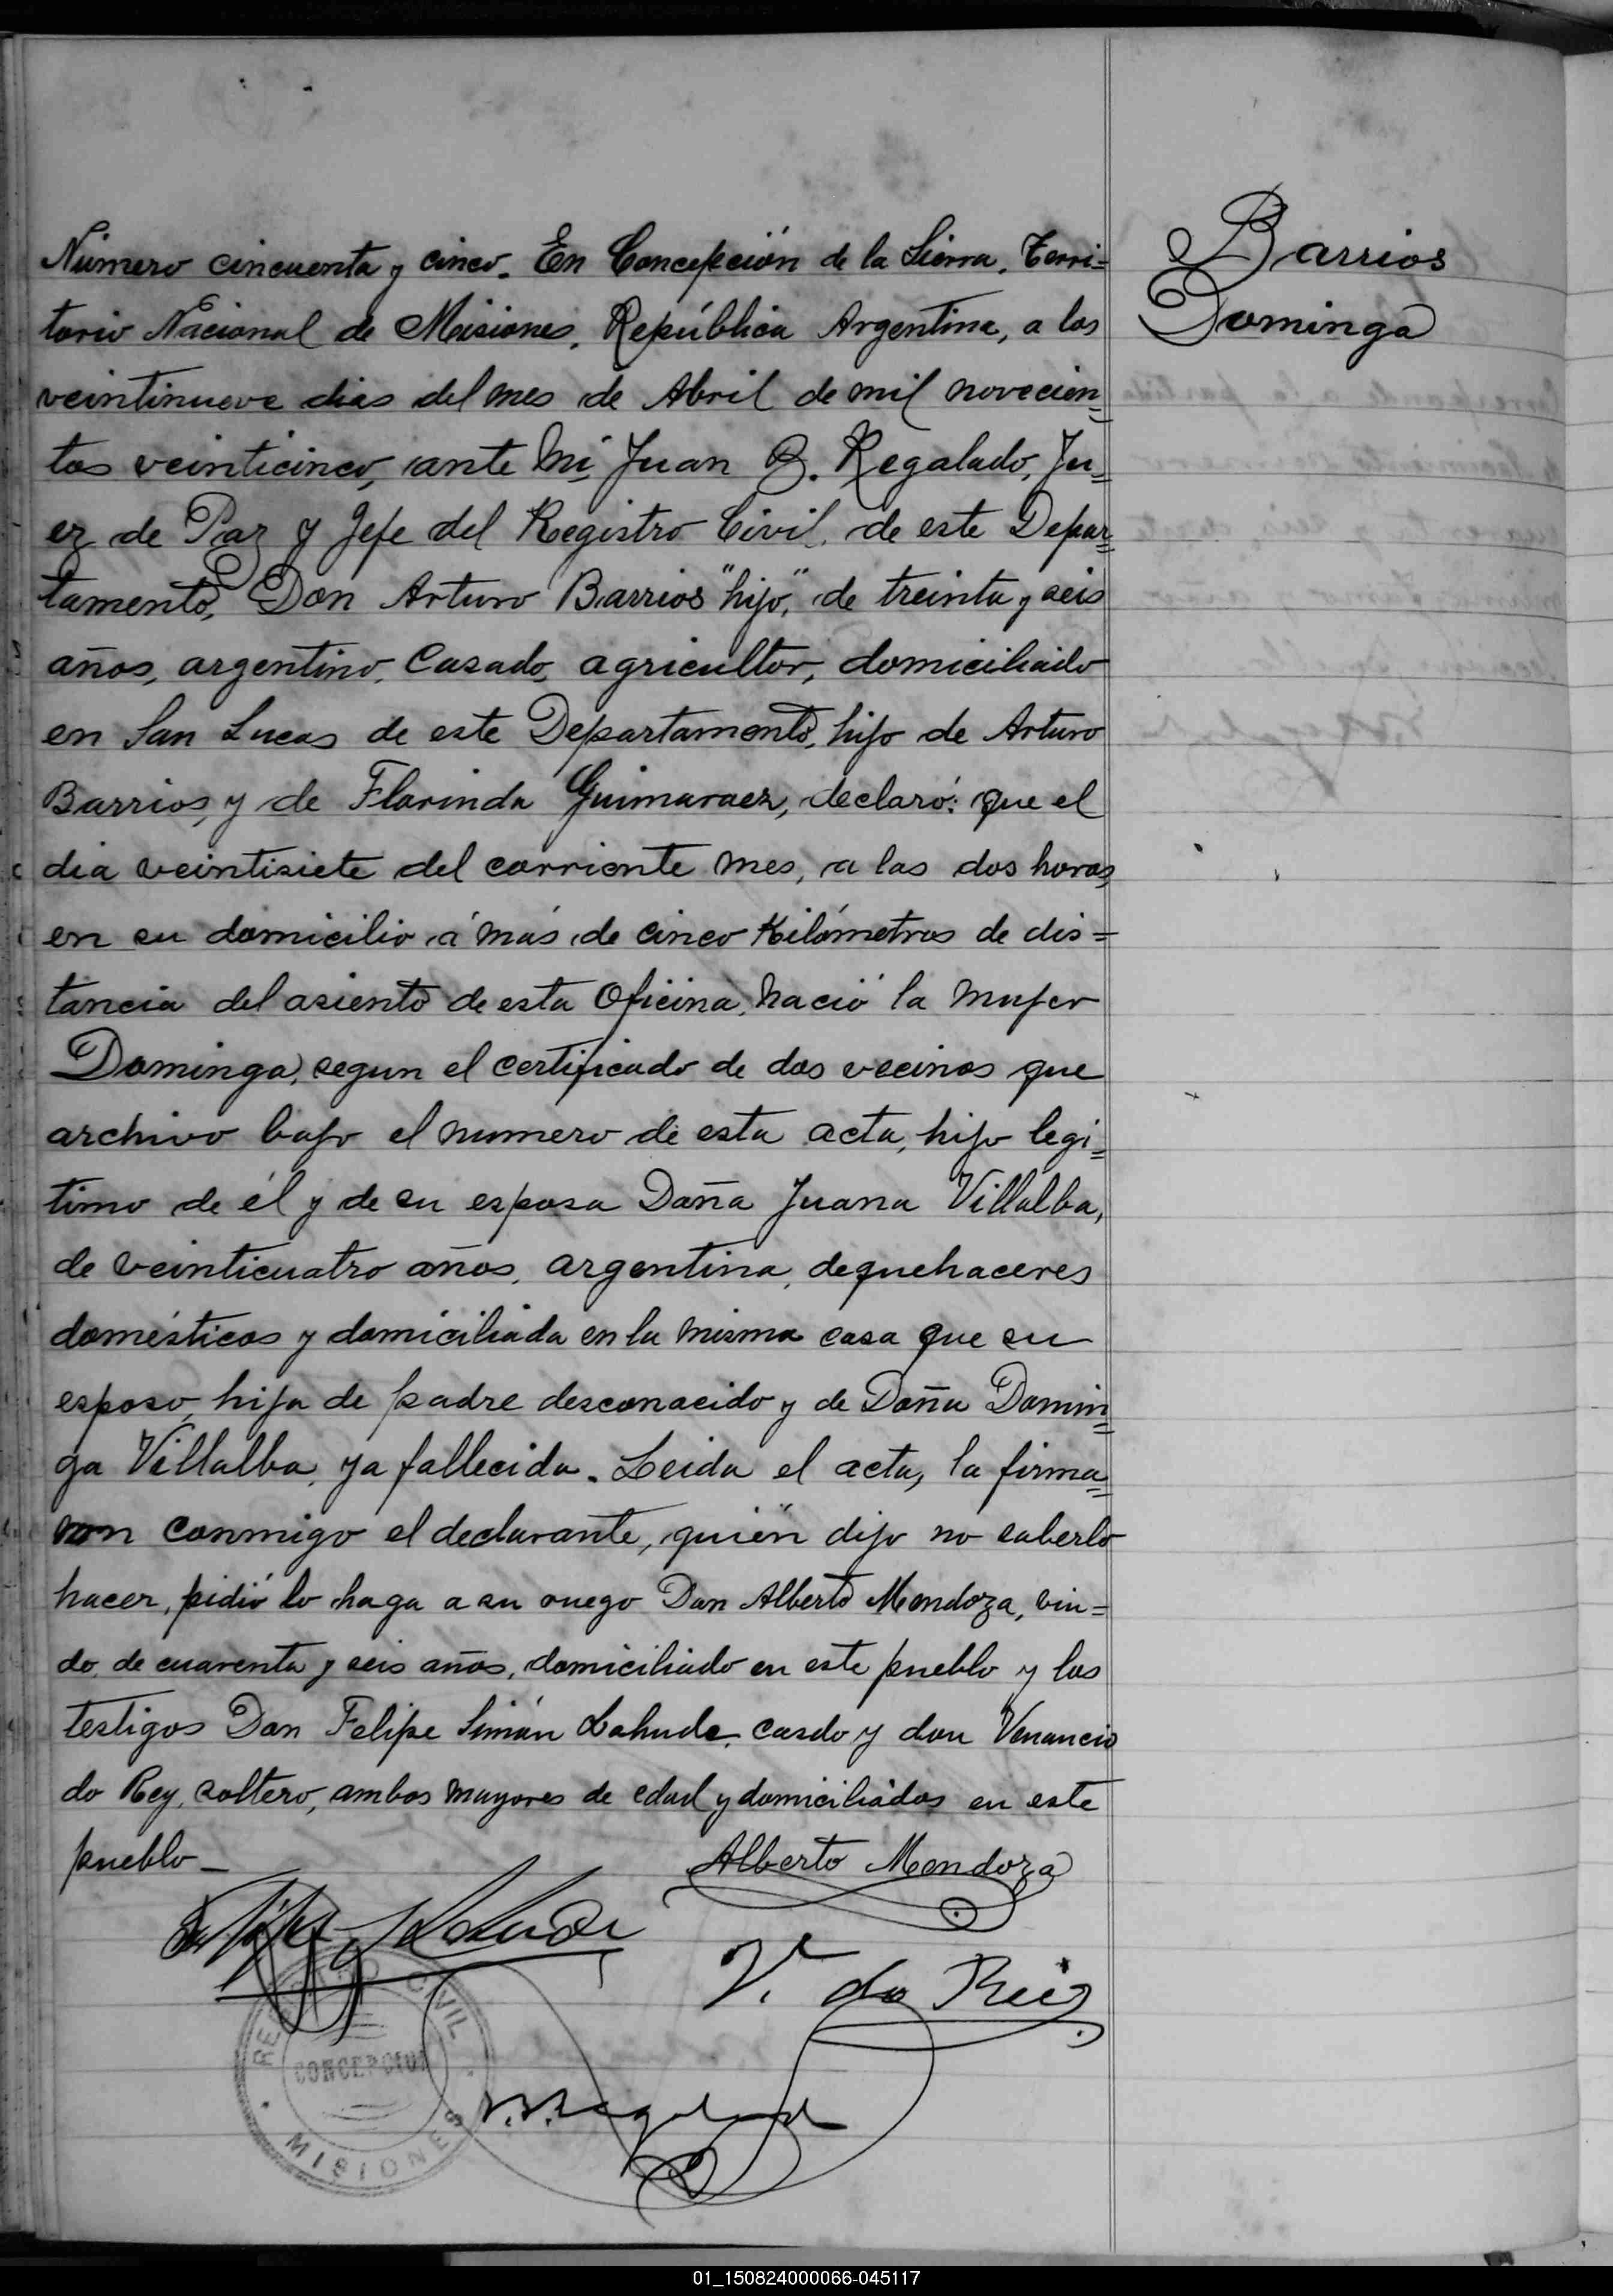 Número cincuenta y cinco. En Concepción de la Sierra, Terri=
torio Nacional de Misiones, República Argentina, a los
veintinueve dias del mes de Abril de mil novecien=
tos veinticinco, ante mi Juan B. Regalado, Ju=
ez de Paz y Jefe del Registro Civil, de este Depar=
tamento, Don Arturo Barrios "hijo", de treinta y seis
años, argentino, casado, agricultor, domiciliado
en San Lucas de este Departamento, hijo de Arturo
Barrios, y de Florinda Guimaraez, declaró: que el
dia veintisiete del corriente mes, a las dos horas,
en su domicilio á más de cinco Kilómetros de dis=
tancia del asiento de esta Oficina, nació la mujer
Dominga, segun el certificado de dos vecinos que
archivo bajo el numero de esta acta, hijo legi=
timo de él y de su esposa Doña Juana Villalba,
de veinticuatro años, argentina, de quehaceres
domésticos y domiciliada en la misma casa que su
esposo, hija de padre desconocido y de Doña Domin=
ga Villalba, ya fallecida. Leida el acta, la firma=
ron conmigo el declarante, quién dijo no saberlo
hacer, pidió lo haga a su ruego Don Alberto Mendoza, viu=
do, de cuarenta y seis años, domiciliado en este pueblo y los
testigos Don Felipe Simón Lahude, casdo y don Venancio
do Rey, soltero, ambos mayores de edad y domiciliados en este
pueblo_
Barrios
Dominga
Alberto Mendoza
V. do Rey
REGISTRO CIVIL
CONCEPCION
MISIONES
01_150824000066-045117